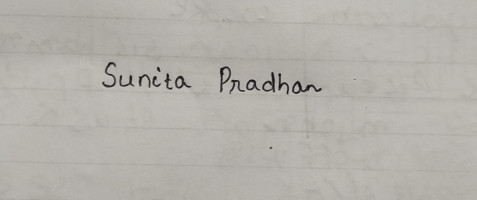 Sunita Pradhan